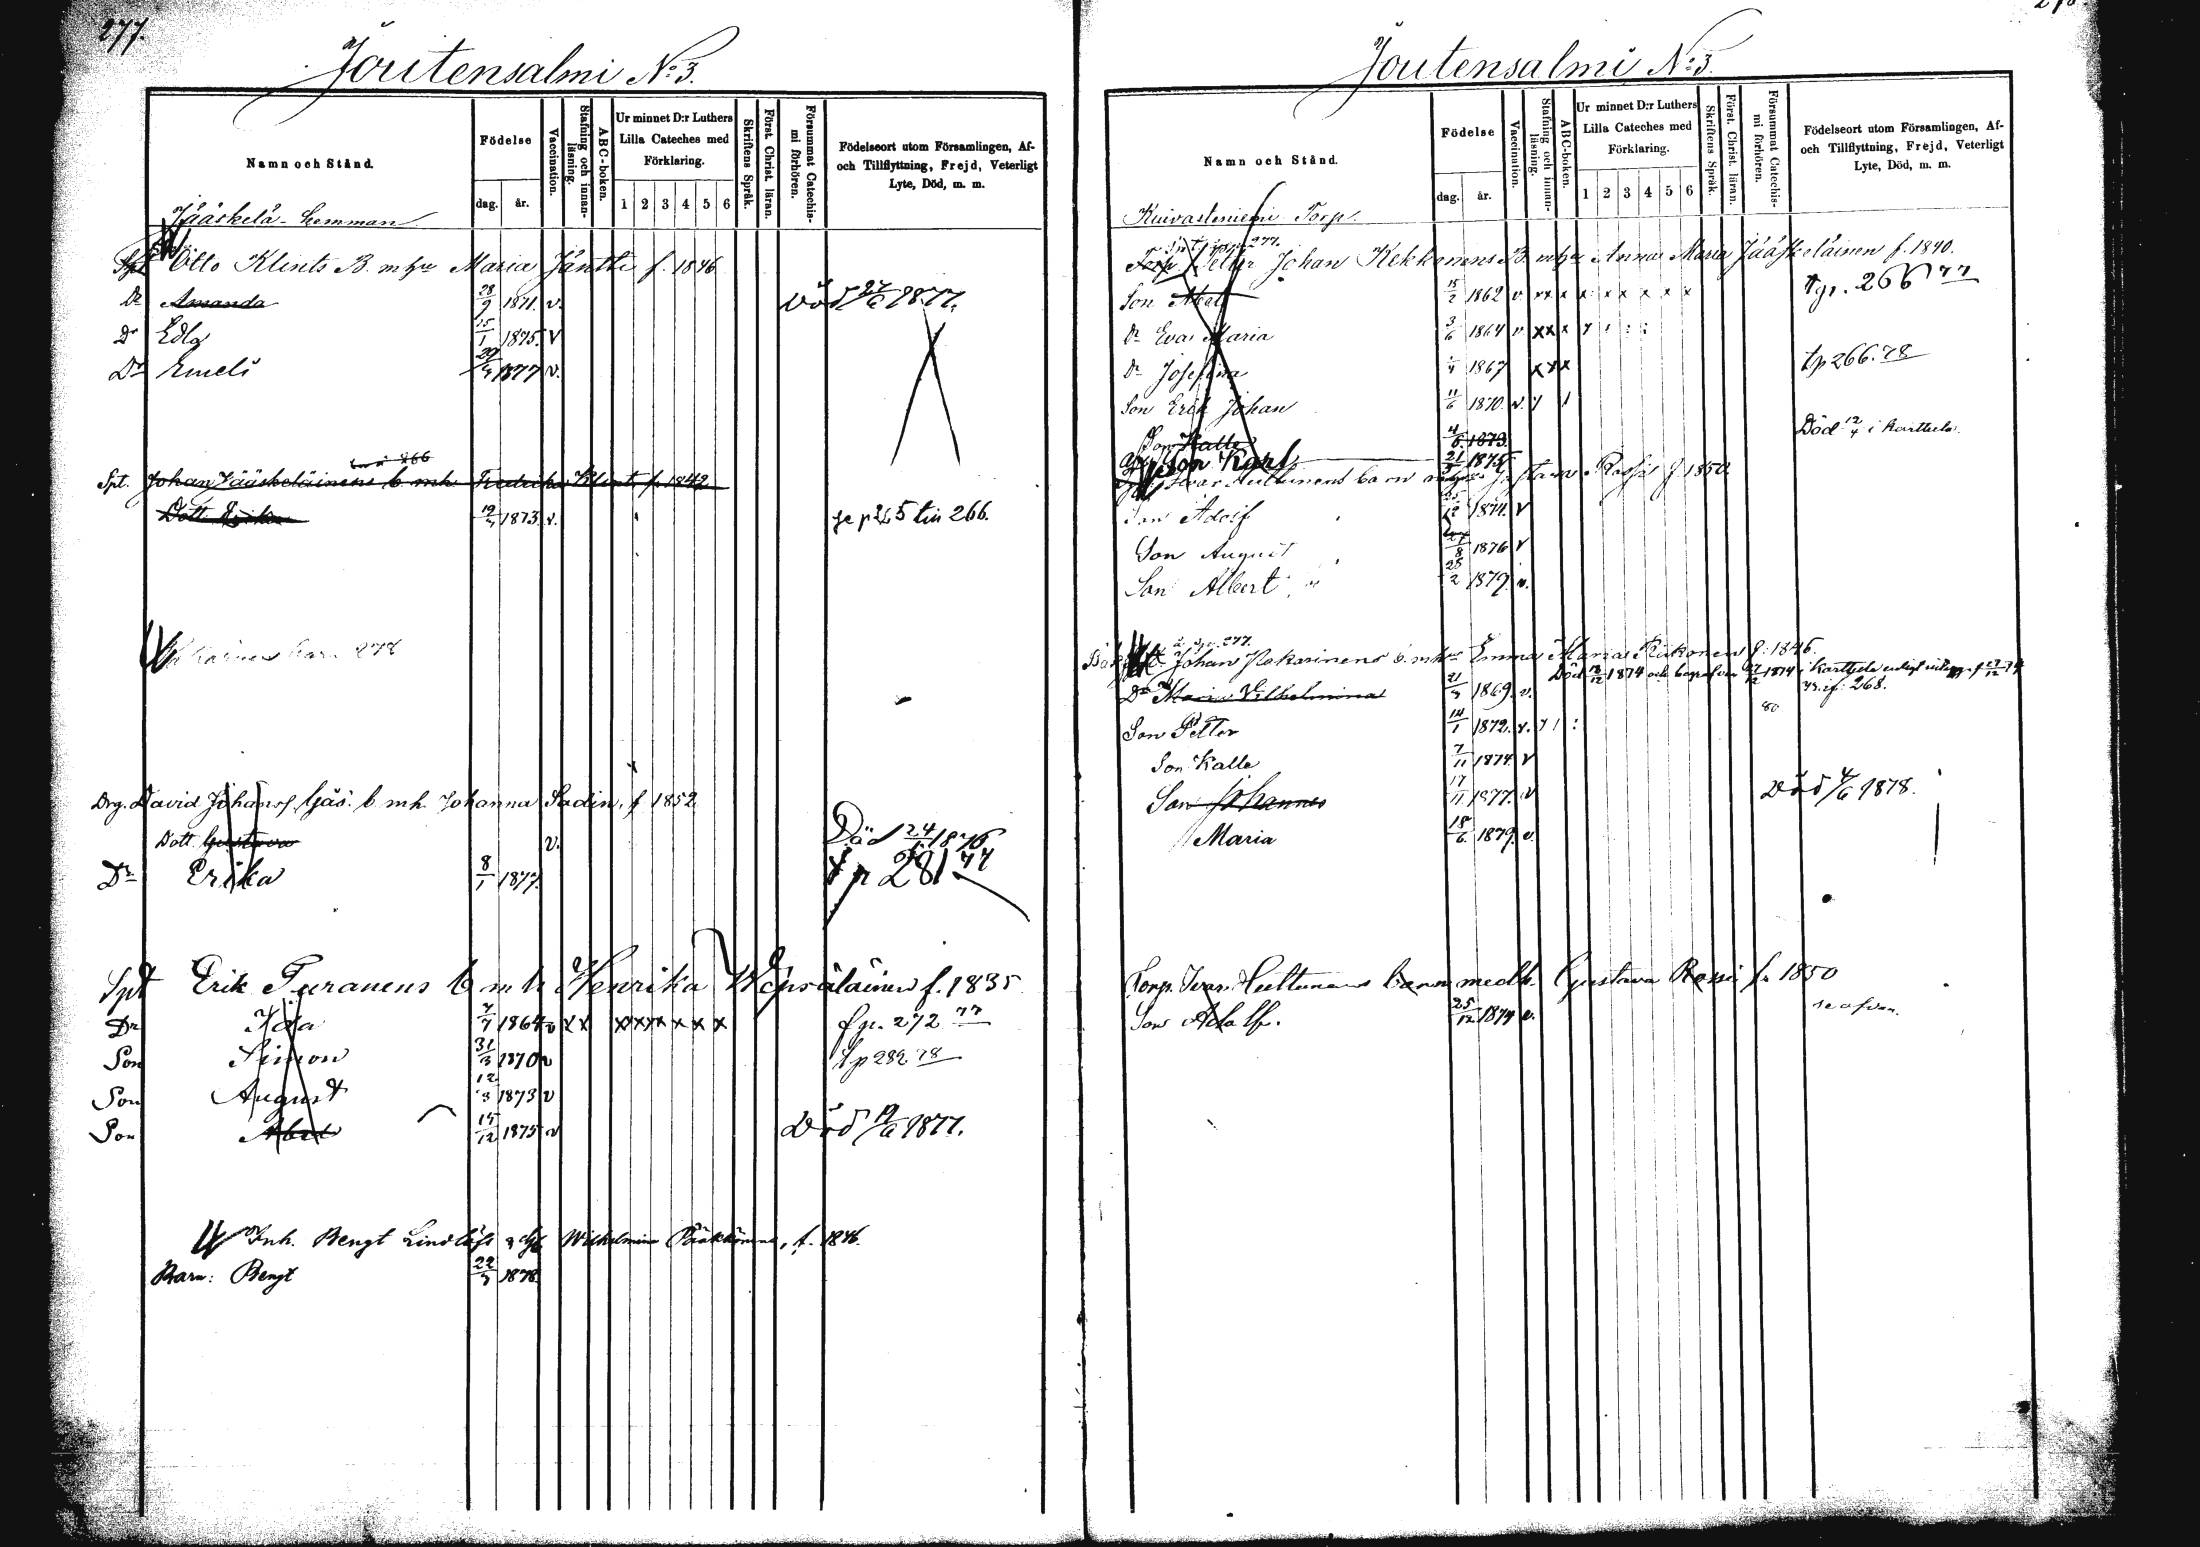 277.
Joutensalmi No 3.
Namn och Stånd.
Födelse
dag. år.
Vaccination.
Stafning och innan-läsning.
ABC-boken.
Ur minnet D:r Luthers Lilla Cateches med Förklaring.
1 2 3 4 5 6
Skriftens Språk.
Först. Christ. läran.
Försummat Catechis-mi förhören.
Födelseort utom Församlingen, Af- och Tillflyttning, Frejd, Veterligt Lyte, Död, m. m.
Jääskelä hemman
Otto Klints B. m hu Maria Jäntti f. 1846
Dr Amanda 28/9 1871. v. Död 27/6 1877.
Dr Edla 15/1 1875. v
Dr Emeli 1877 v.
Spt. Johan Jääskeläinens b. mh. Fredrika Klint f. 1842
Dott. 1873. v. se p 265 tin 266.
barn 278
Drg. David Johans b. mh. Johanna Sadin, f 1852
Dott. Gustava v. Död 24/ 1876
Dr Erika 8/1 1877. p 281 77
Spt Erik Turanens b m h Henrika Wepsäläinen f. 1835
Dr Ida 7/7 1864 v x x x x x x x x x p. 272 77
Son Simon 31/3 1870 v tp 282 78
Son August 12/3 1873 v
Son Abel 15/12 1875 v Död 19/6 1877.
Inh. Bengt Wilhelmina f. 1846.
Barn: Bengt 22/ 1878
Joutensalmi No 3.
Namn och Stånd.
Födelse
dag. år.
Vaccination.
Stafning och innan-läsning.
ABC-boken.
Ur minnet D:r Luthers Lilla Cateches med Förklaring.
1 2 3 4 5 6
Skriftens Språk.
Först. Christ. läran.
Försummat Catechis-mi förhören.
Födelseort utom Församlingen, Af- och Tillflyttning, Frejd, Veterligt Lyte, Död, m. m.
Kuivasteniemi Torp.
277.
Torp. Petter Johan Kekkonens B. m hu Anna Maria Jääskeläinen f. 1840.
Son Abel 15/2 1862 v x x x x x x x x x 266 77
Dr Eva Maria 3/6 1864 v x x x
Dr Josefina 1867 x x x tp 266. 78
Son Erik Johan 11/6 1870. v.
Son Kalle 1873. Död 12/4 i Karttula.
Son Karl 21/ 1875
Ivar Hultunens barn Gustava Rossi f 1850
Son Adolf 25/12 1874. v
Son August 27/8 1876 v
Son Albert 28/2 1879. v.
277.
Johan Kokarinens b. m hu Emma Maria Riikonen f: 1846.
Död 1874 och begrafven 1874 i Karttula enligt
Dr Maria Vilhelmina 21/ 1869. v. 268.
80
Son Petter 14/1 1872. v.
Son Kalle 7/11 1874. v
Son Johannes 17/11 1877. v Död 4/6 1878.
Maria 18/6 1879. v.
Torp. Ivar Hultunens barn medh. Gustava Rossi f. 1850
Son Adolf. 25/12 1874 v. se ofvan.